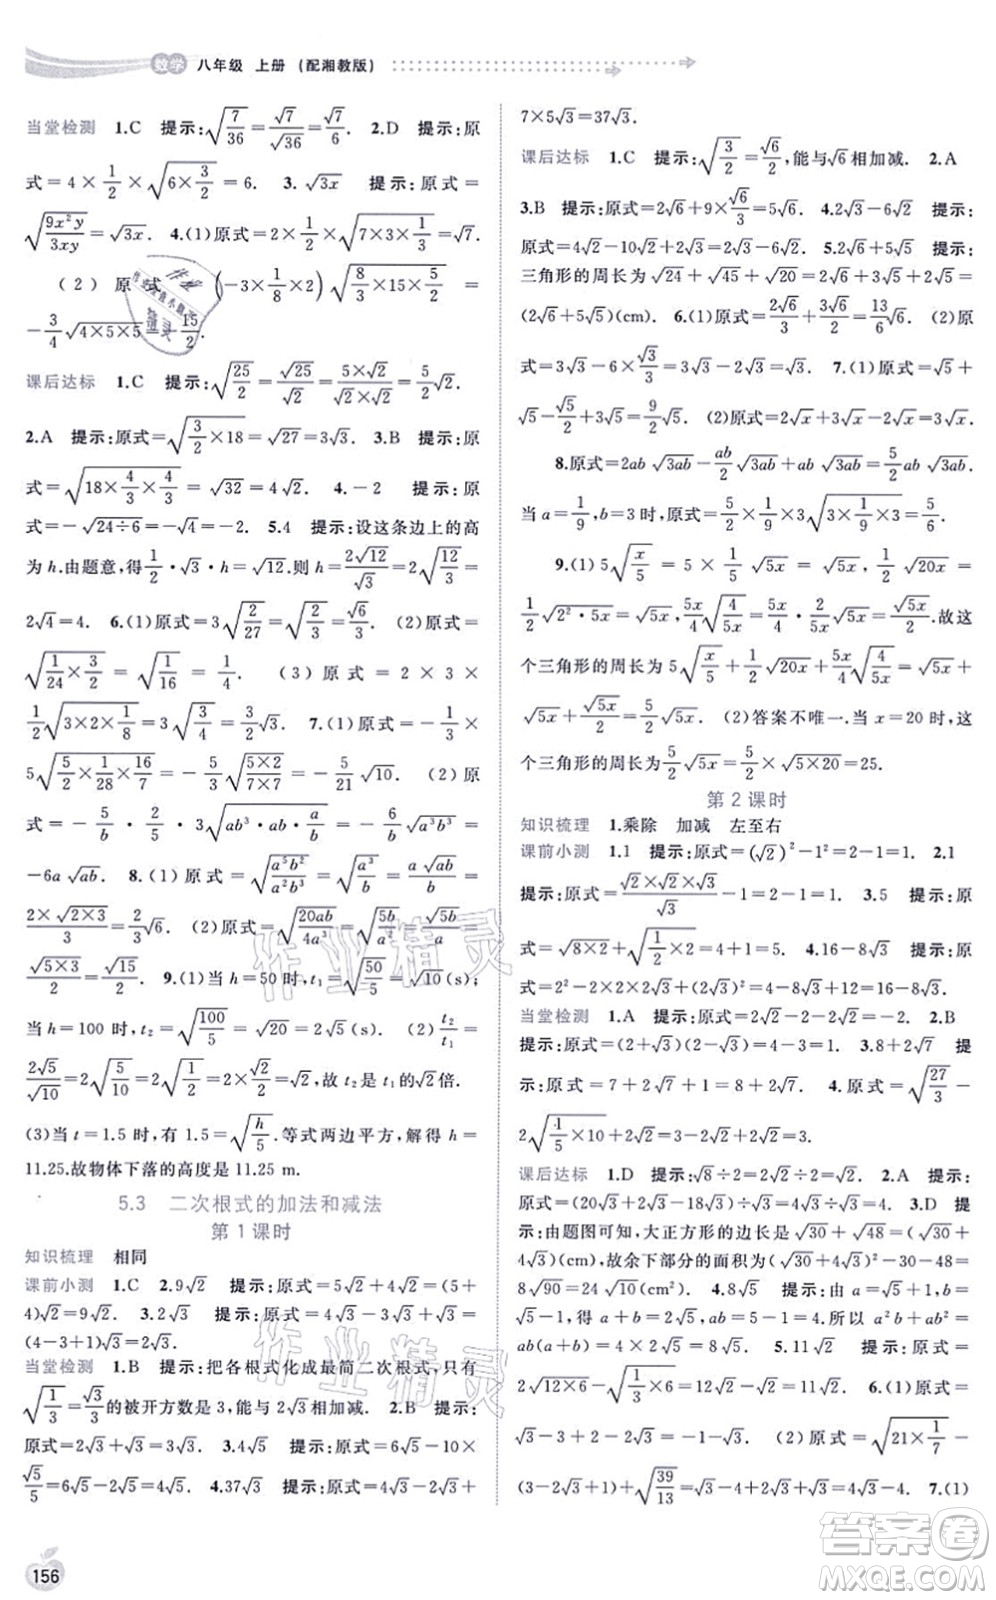 数学 八年级 上册 (配湘教版)
当堂检测 1.C 提示:√(7/36)=√7/√36=√7/6. 2.D 提示:原
式=4×1/2×√(6×3/2)=6. 3.√3x 提示:原式=
√(9x²y/3xy)=√3x. 4.(1)原式=2×1/2×√(7×3×1/3)=√7.
(2) 原 式 (-3×1/8×2)√(8/3×15×5/2)=
-3/4√(4×5×5) 15/2.
课后达标 1.C 提示:√(25/2)=√25/√2=(5×√2)/(√2×√2)=5/2√2.
2.A 提示:原式=√(3/2×18)=√27=3√3. 3.B 提示:原
式=√(18×4/3×4/3)=√32=4√2. 4.-2 提示:原
式=-√(24÷6)=-√4=-2. 5.4 提示:设这条边上的高
为h.由题意,得1/2·√3·h=√12.则h=2√12/√3=2√(12/3)=
2√4=4. 6.(1)原式=3√(2/27)=√(2/3)=√6/3. (2)原式=
√(1/24×3/2)=√(1/16)=1/4. (3)原式=2×3×
1/2√(3×2×1/8)=3√(3/4)=3/2√3. 7.(1)原式=-1/3×
5√(5/2×1/28×16/7)=-5/3√((5×2)/(7×7))=-5/21√10. (2)原
式=-5/b·2/5·3√(ab³·a/b)=-6/b√(a³b³)=
-6a√ab. 8.(1)原式=√(a⁵b²/a²b³)=√(a³/b)=a/b√ab.
2×√(2×3)/3=2/3√6. (2)原式=√(20ab/4a³)=√(5b/a²)=√5b/a.
√(5×3)/2=√15/2. 9.(1)当h=50时,t₁=√(50/5)=√10(s);
当h=100时,t₂=√(100/5)=√20=2√5(s). (2)t₂/t₁=
2√5/√10=2√(5/10)=2√(1/2)=√2,故t₂是t₁的√2倍.
(3)当t=1.5时,有1.5=√(h/5).等式两边平方,解得h=
11.25.故物体下落的高度是11.25 m.
5.3 二次根式的加法和减法
第1课时
知识梳理 相同
课前小测 1.C 2.9√2 提示:原式=5√2+4√2=(5+
4)√2=9√2. 3.2√3 提示:原式=4√3-3√3+√3=
(4-3+1)√3=2√3.
当堂检测 1.B 提示:把各根式化成最简二次根式,只有
√(1/3)=√3/3的被开方数是3,能与2√3加减. 2.B 提示:
原式=2√3+√3=3√3. 3.4√5 提示:原式=6√5-10×
√5/5=6√5-2√5=4√5. 4.37√3 提示:原式=2√3+
7×5√3=37√3.
课后达标 1.C 提示:√(3/2)=√6/2,能与√6相加减. 2.A
3.B 提示:原式=2√6+9×√6/3=5√6. 4.2√3-6√2 提示:
原式=4√2-10√2+2√3=2√3-6√2. 5.2√6+5√5 提示:
三角形的周长为√24+√45+√20=2√6+3√5+2√5=
(2√6+5√5)(cm). 6.(1)原式=2√6/3+√6/2+... (2)原
式=3√3-6√3+√3/3=-8/3√3. 7.(1)原式=√5+
√5-√5/2+3√5=9/2√5. (2)原式=2√x+3√x-2√x=3√x.
8.原式=2ab√3ab-ab/2√3ab+ab√3ab=5/2ab√3ab.
当a=1/9,b=3时,原式=5/2×1/9×3√(3×1/9×3)=5/6.
9.(1)5√(x/5)=5×1/5×√5x=√5x,1/2√20x=
1/2√(2²·5x)=√5x,5x/4√(4/5x)=5x/4·2/5x·√5x=√5x/2.故这
个三角形的周长为5√(x/5)+1/2√20x+5x/4√(4/5x)=√5x+
√5x+√5x/2=5/2√5x. (2)答案不唯一.当x=20时,这
个三角形的周长为5/2√5x=5/2×√(5×20)=25.
第2课时
知识梳理 1.乘除 加减 左至右
课前小测 1.1 提示:原式=(√2)²-1²=2-1=1. 2.1
提示:原式=√2×√2×√3/√3-1=2-1=1. 3.5 提示:原
式=√(8×2)+√(1/2×2)=4+1=5. 4.16-8√3 提示:
原式=2²-2×2×2√3+(2√3)²=4-8√3+12=16-8√3.
当堂检测 1.A 提示:原式=2√2-2-2√2=-2. 2.B
提示:原式=(2+√3)(2-√3)=4-3=1. 3.8+2√7 提
示:原式=7+2√7+1=8+2√7. 4.原式=√(27/3)-
2√(1/5×10)+2√2=3-2√2+2√2=3.
课后达标 1.D 提示:√8÷√2=√(8÷2)=2. 2.A 提示:
原式=(20√3+12√3-8√3)÷4√3=24√3÷4√3=6. 3.D 提
示:由题图可知,大正方形的边长是√30+√48=(√30+
4√3)cm.故余下部分的面积为(√30+4√3)²-30-48=
8√90=24√10(cm²). 4.8√5 提示:由a=√5+1,b=
√5-1,得a+b=2√5,ab=(√5+1)(√5-1)=4.所以a²b+ab²=
ab(a+b)=4×2√5=8√5. 5.11√2 提示:原式=
2√(12×6)-√(1/3×6)=12√2-√2=11√2. 6.(1)原式=
√3-3+2√3-3√3=-3. (2)原式=√(21×1/7)-
(3-2√3+1)+√(39/13)=√3-4+2√3+√3=4√3-4. 7.(1)
156
答案圈
MXQE.COM
作业精灵